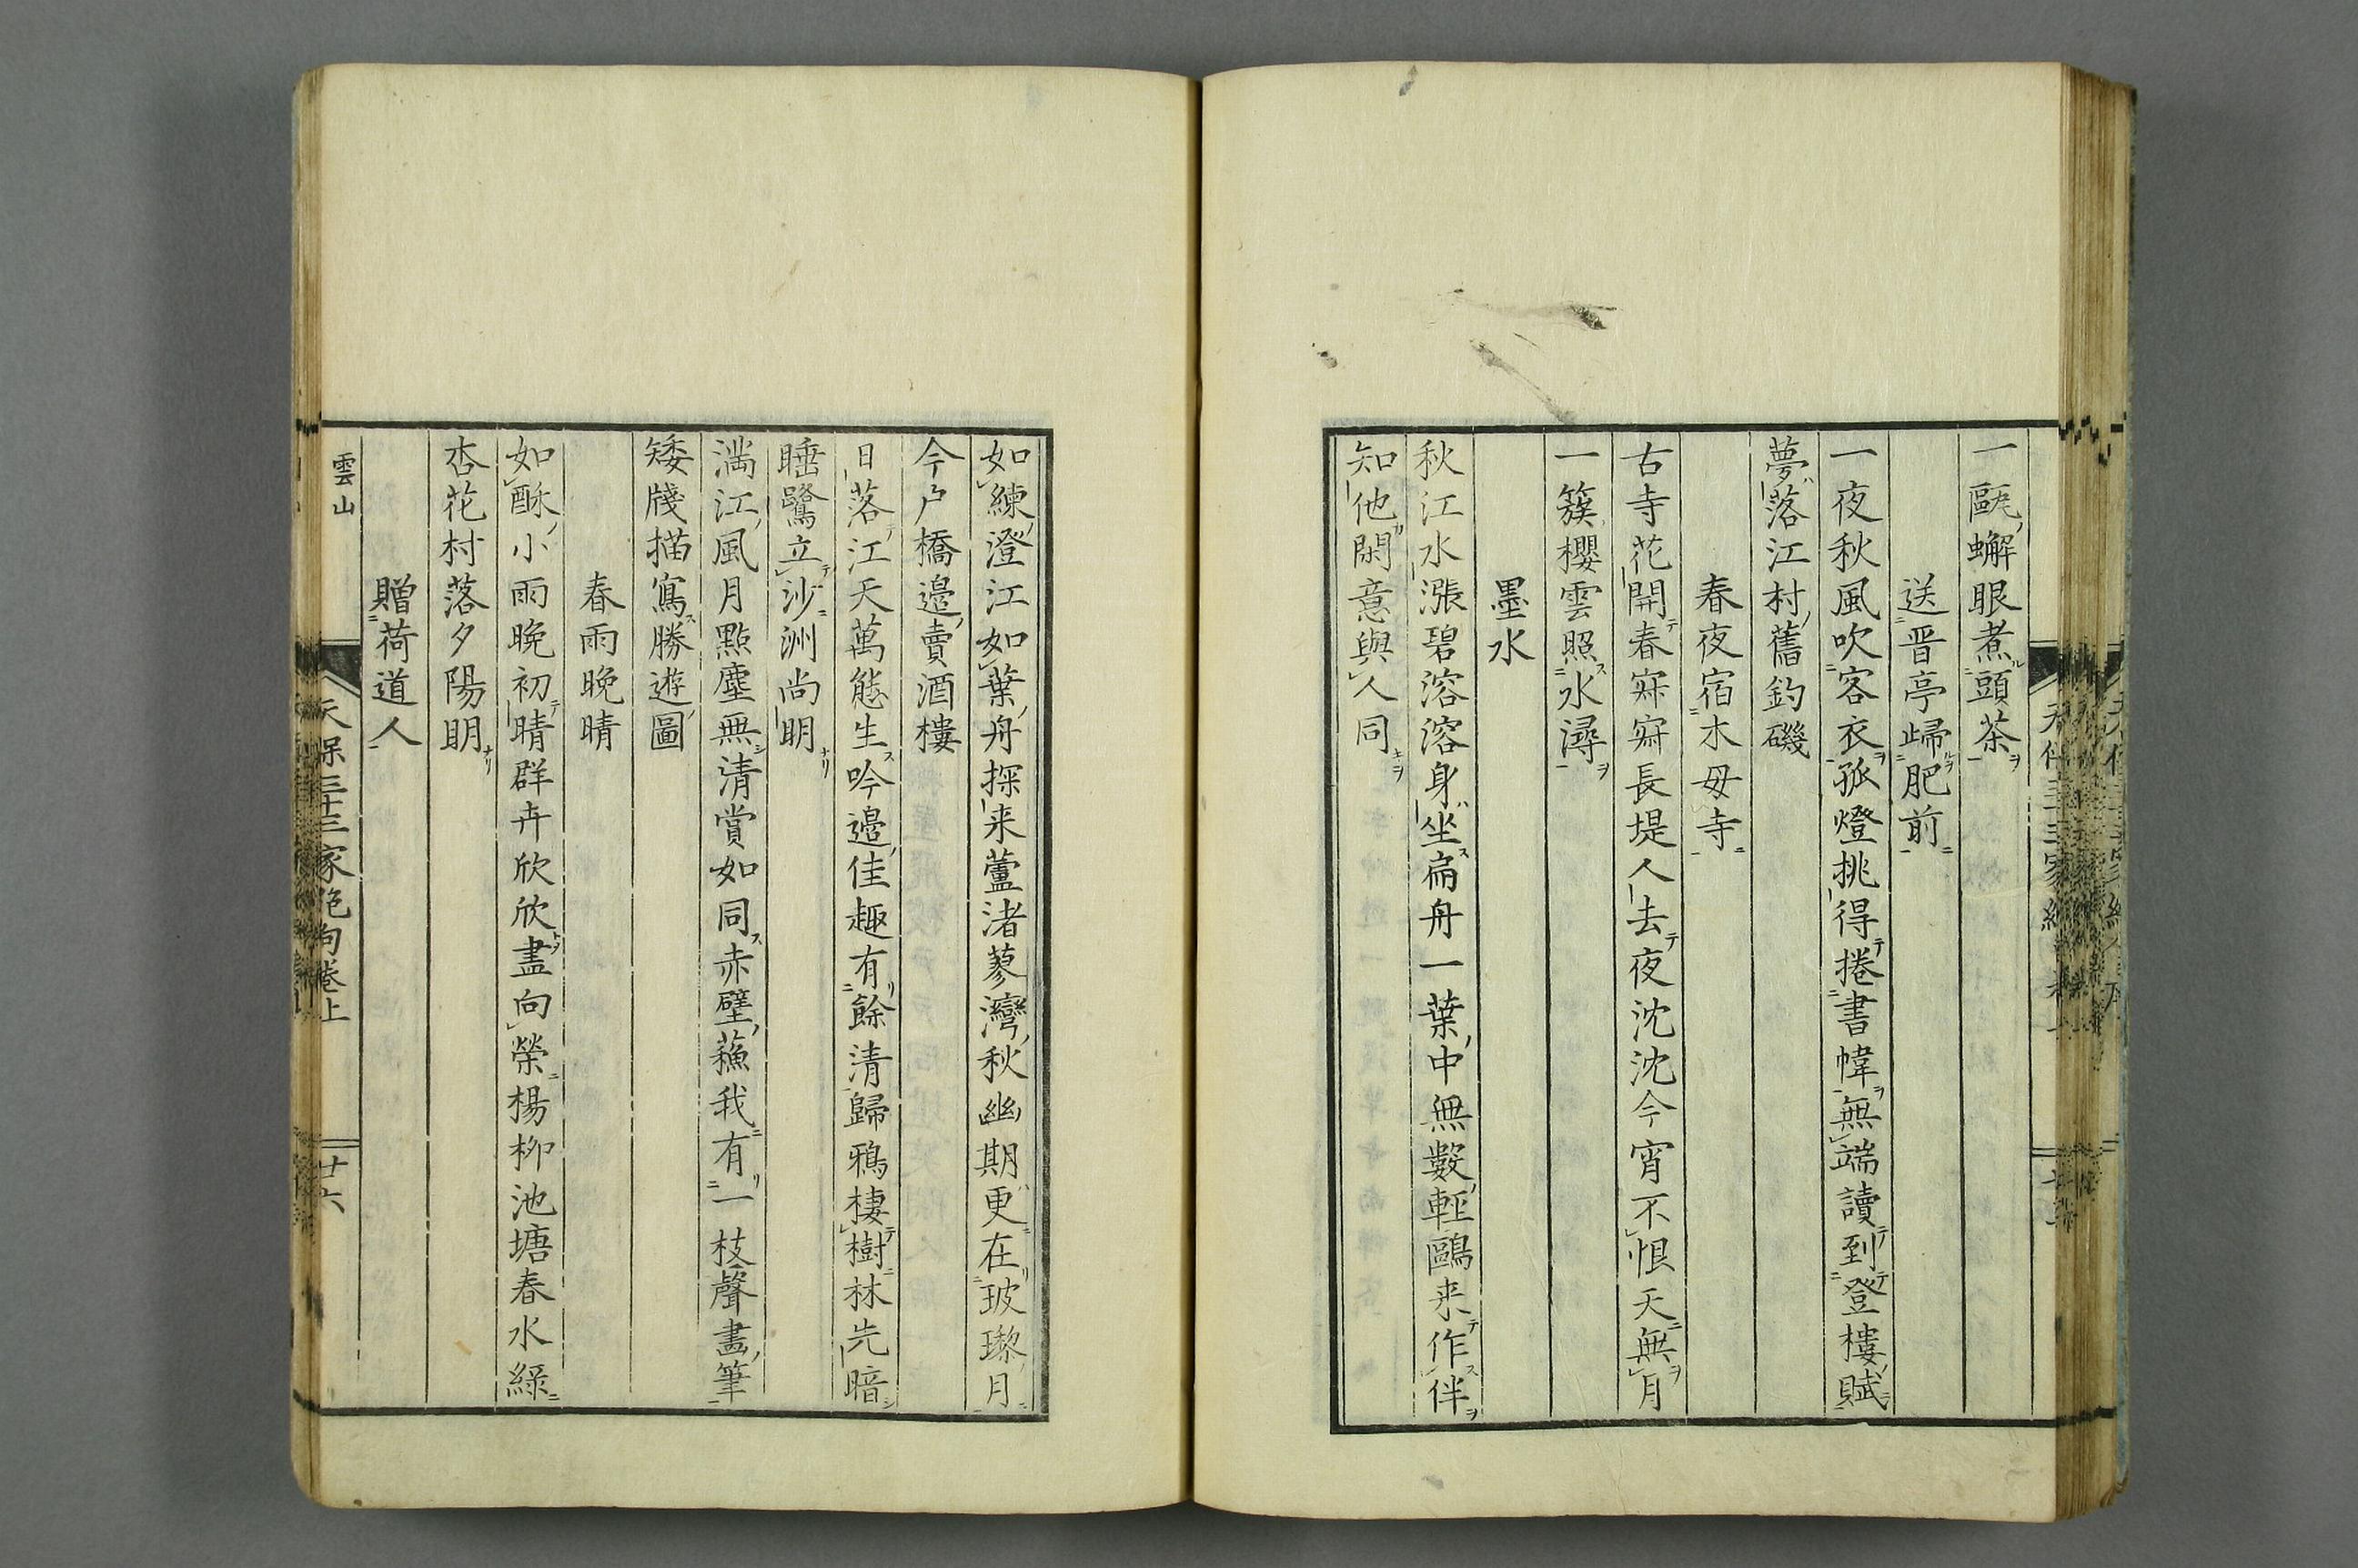 一甌蠏眼煮頭茶
送晋亭歸肥前
一夜秋風吹客衣孤燈挑得捲書幃無端讀到登樓賦
夢落江村舊釣磯
春夜宿木母寺
古寺花開春寂寂長堤人去夜沈沈今宵不恨天無月
一簇櫻雲照水潯
墨水
秋江水漲碧溶溶身坐扁舟一葉中無數輕鷗来作伴
知他閑意與人同
如練澄江如葉舟探来蘆渚蓼灣秋幽期更在玻瓈月
今戸橋邉賣酒樓
日落江天萬態生吟邉佳趣有餘清歸鴉棲樹林先暗
睡鷺立沙洲尚明
満江風月點塵無清賞如同赤壁蘓我有一枝聲畫筆
矮牋描寫勝遊圖
春雨晩晴
如酥小雨晩初晴群卉欣欣盡向榮楊柳池塘春水緑
杏花村落夕陽明
贈荷道人
雲山
天保三十三家絶句卷上
廿六